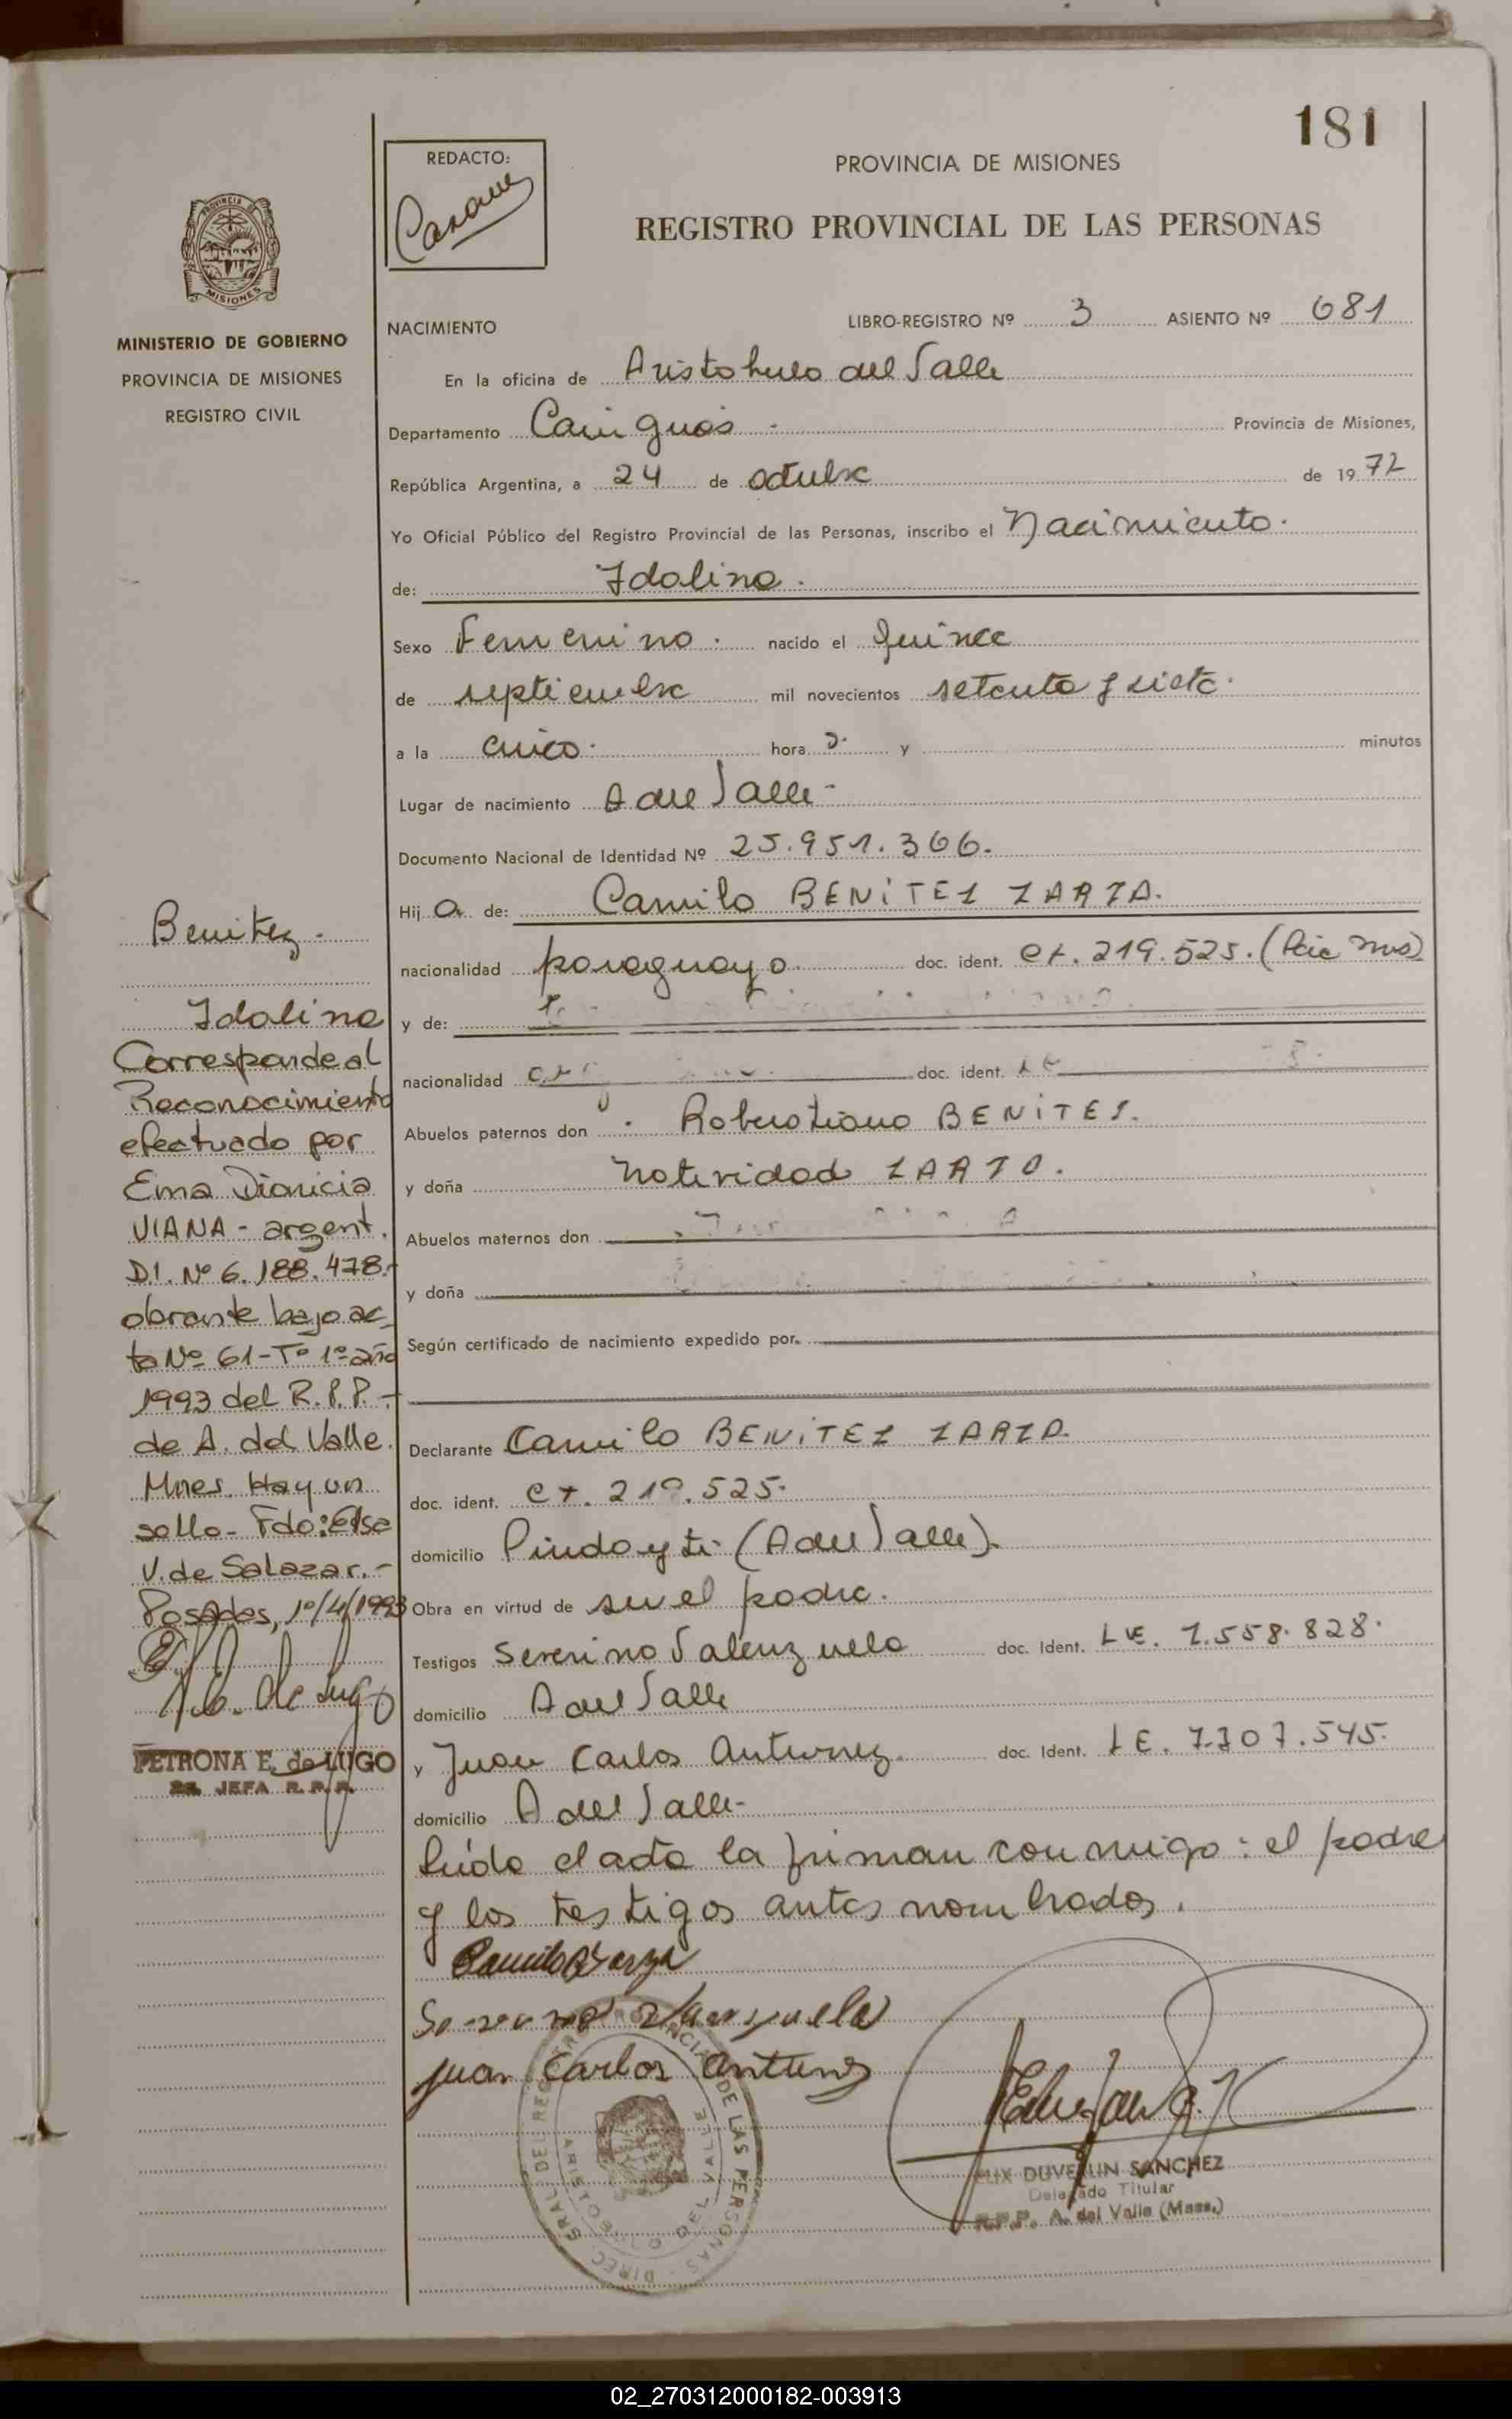 181
REDACTO:
PROVINCIA DE MISIONES
REGISTRO PROVINCIAL DE LAS PERSONAS
PROVINCIA DE
MISIONES
MINISTERIO DE GOBIERNO
PROVINCIA DE MISIONES
REGISTRO CIVIL
NACIMIENTO
LIBRO-REGISTRO Nº 3 ASIENTO Nº 681
En la oficina de Aristobulo del Valle
Departamento Cainguás - Provincia de Misiones,
República Argentina, a 24 de octubre de 1972
Yo Oficial Público del Registro Provincial de las Personas, inscribo el Nacimiento.
de: Idolina.
Sexo Femenino. nacido el quince
de septiembre mil novecientos setenta y siete.
a la cinco. hora s. y minutos
Lugar de nacimiento A del Valle-
Documento Nacional de Identidad Nº 25.951.366.
Hij a de: Camilo BENITEZ ZARZA.
nacionalidad paraguayo. doc. ident. 219.525.
y de:
nacionalidad doc. ident.
Abuelos paternos don BENITEZ.
y doña Natividad
Abuelos maternos don
y doña
Según certificado de nacimiento expedido por.
Declarante Camilo BENITEZ ZARZA.
doc. ident. 219.525.
domicilio Pindoyti (A del Valle).
Obra en virtud de ser el padre.
Testigos Severino Valenzuela doc. Ident. LE. 7.558.828.
domicilio A del Valle
y Juan Carlos Antunez. doc. Ident. LE. 545.
domicilio A del Valle-
Leída el acta la firman conmigo: el padre
y los testigos antes nombrados.
Juan Carlos Antunez
DIREC. GRAL DEL REG. PROVINCIAL DE LAS PERSONAS
ARISTOBULO DEL VALLE
DUVERLIN SANCHEZ
Delegado Titular
R.P.P. A. del Valle (Mnes.)
Benitez.
Idolina
Corresponde al
Reconocimiento
efectuado por
Ema Dionicia
VIANA - argent.
D.I. Nº 6.188.478.-
obrante bajo ac_
ta Nº 61-Tº 1º año
1993 del R.P.P. -
de A. del Valle.
Mnes. Hay un
sello- Fdo: Elsa
V. de Salazar.-
Posadas, 1º/4/1993
PETRONA E. de LUGO
JEFA R.P.P.
02_270312000182-003913